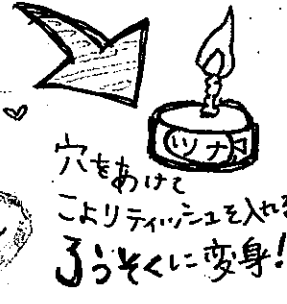 ツナ
穴をあけて
こよりティッシュを入れる
ろうそくに変身!